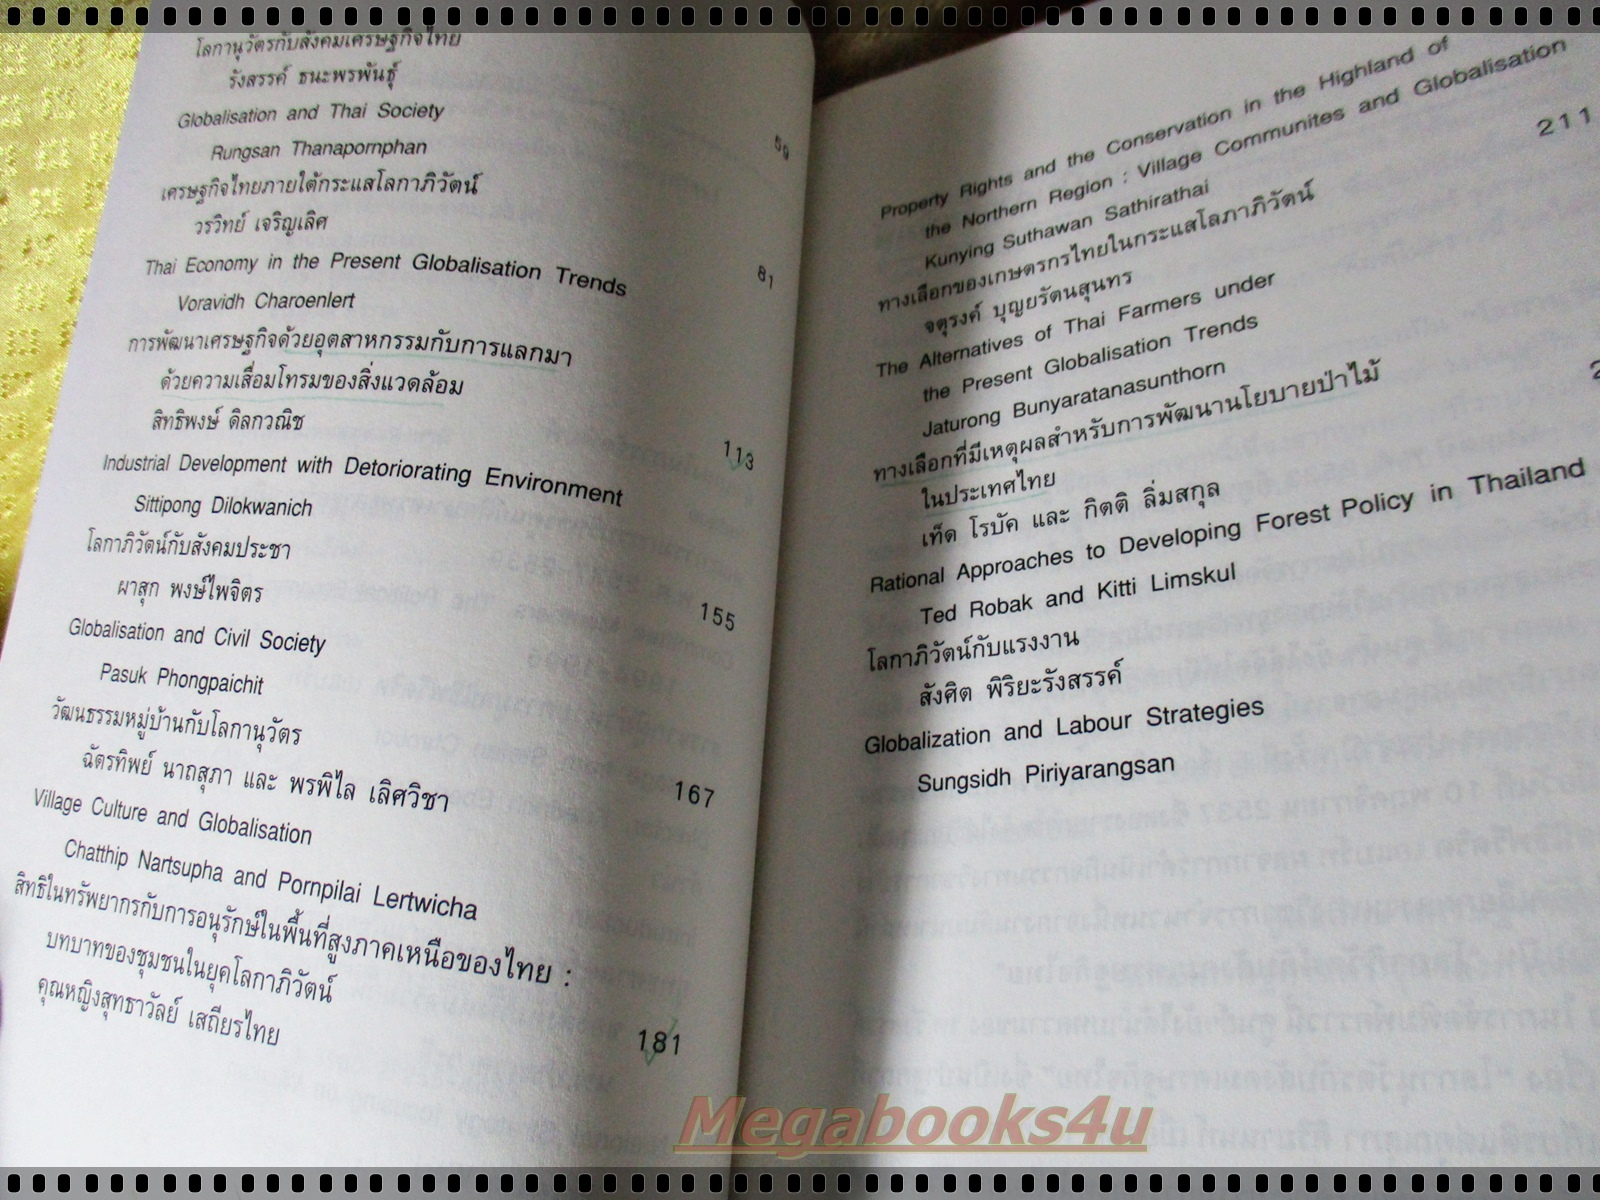 โลกานุวัตรกับสังคมเศรษฐกิจไทย
รังสรรค์ ธนะพรพันธุ์
Globalisation and Thai Society
Rungsan Thanapornphan
59
เศรษฐกิจไทยภายใต้กระแสโลกาภิวัตน์
วรวิทย์ เจริญเลิศ
Thai Economy in the Present Globalisation Trends
81
Voravidh Charoenlert
การพัฒนาเศรษฐกิจด้วยอุตสาหกรรมกับการแลกมา
ด้วยความเสื่อมโทรมของสิ่งแวดล้อม
สิทธิพงษ์ ดิลกวณิช
113
Industrial Development with Detoriorating Environment
Sittipong Dilokwanich
โลกาภิวัตน์กับสังคมประชา
ผาสุก พงษ์ไพจิตร
155
Globalisation and Civil Society
Pasuk Phongpaichit
วัฒนธรรมหมู่บ้านกับโลกานุวัตร
ฉัตรทิพย์ นาถสุภา และ พรพิไล เลิศวิชา
167
Village Culture and Globalisation
Chatthip Nartsupha and Pornpilai Lertwicha
สิทธิในทรัพยากรกับการอนุรักษ์ในพื้นที่สูงภาคเหนือของไทย :
บทบาทของชุมชนในยุคโลกาภิวัตน์
คุณหญิงสุทธาวัลย์ เสถียรไทย
181
Property Rights and the Conservation in the Highland of
the Northern Region : Village Communites and Globalisation
Kunying Suthawan Sathirathai
211
ทางเลือกของเกษตรกรไทยในกระแสโลภาภิวัตน์
จตุรงค์ บุญยรัตนสุนทร
The Alternatives of Thai Farmers under
the Present Globalisation Trends
Jaturong Bunyaratanasunthorn
ทางเลือกที่มีเหตุผลสำหรับการพัฒนานโยบายป่าไม้
ในประเทศไทย
เท็ด โรบัค และ กิตติ ลิ่มสกุล
Rational Approaches to Developing Forest Policy in Thailand
Ted Robak and Kitti Limskul
โลกาภิวัตน์กับแรงงาน
สังศิต พิริยะรังสรรค์
Globalization and Labour Strategies
Sungsidh Piriyarangsan
Megabooks4u